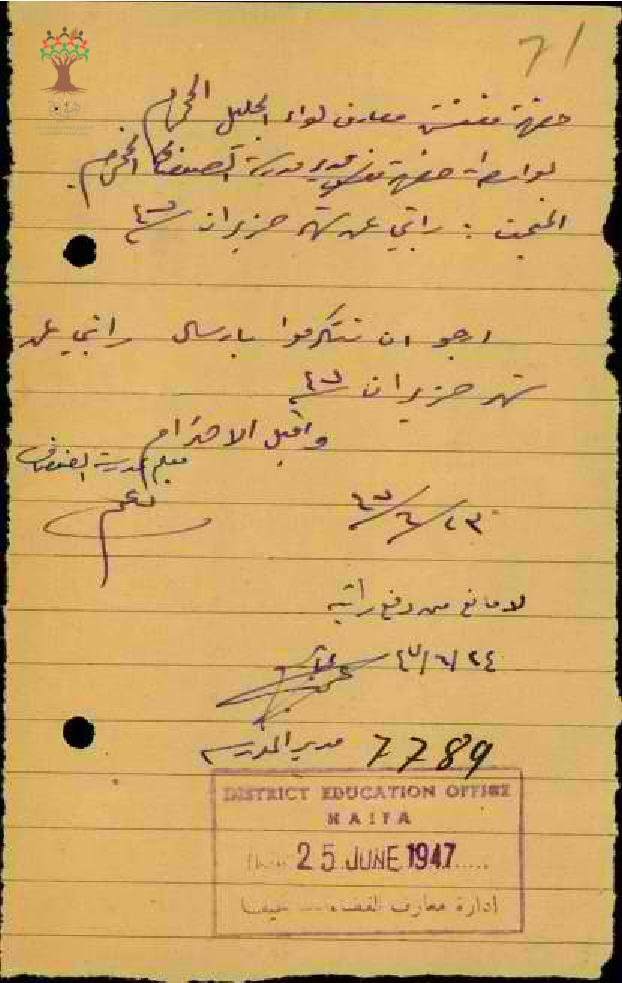 71
حضرة مفتش معارف لواء الجليل المحترم
بواسطة حضرة مدير مدرسة الصفصاف المحترم
المبحث : راتبي عن شهر حزيران ٤٧
ارجو ان تتكرموا بارسال راتبي عن
شهر حزيران ٤٧
واقبل الاحترام
معلم مدرسة الصفصاف
٢٣/٦/٤٧
لا مانع من دفع راتبه
٢٤/٦/٤٧
مدير المدرسة
7789
DISTRICT EDUCATION OFFICE
HAIFA
25 JUNE 1947
ادارة معارف القضاء — حيفا